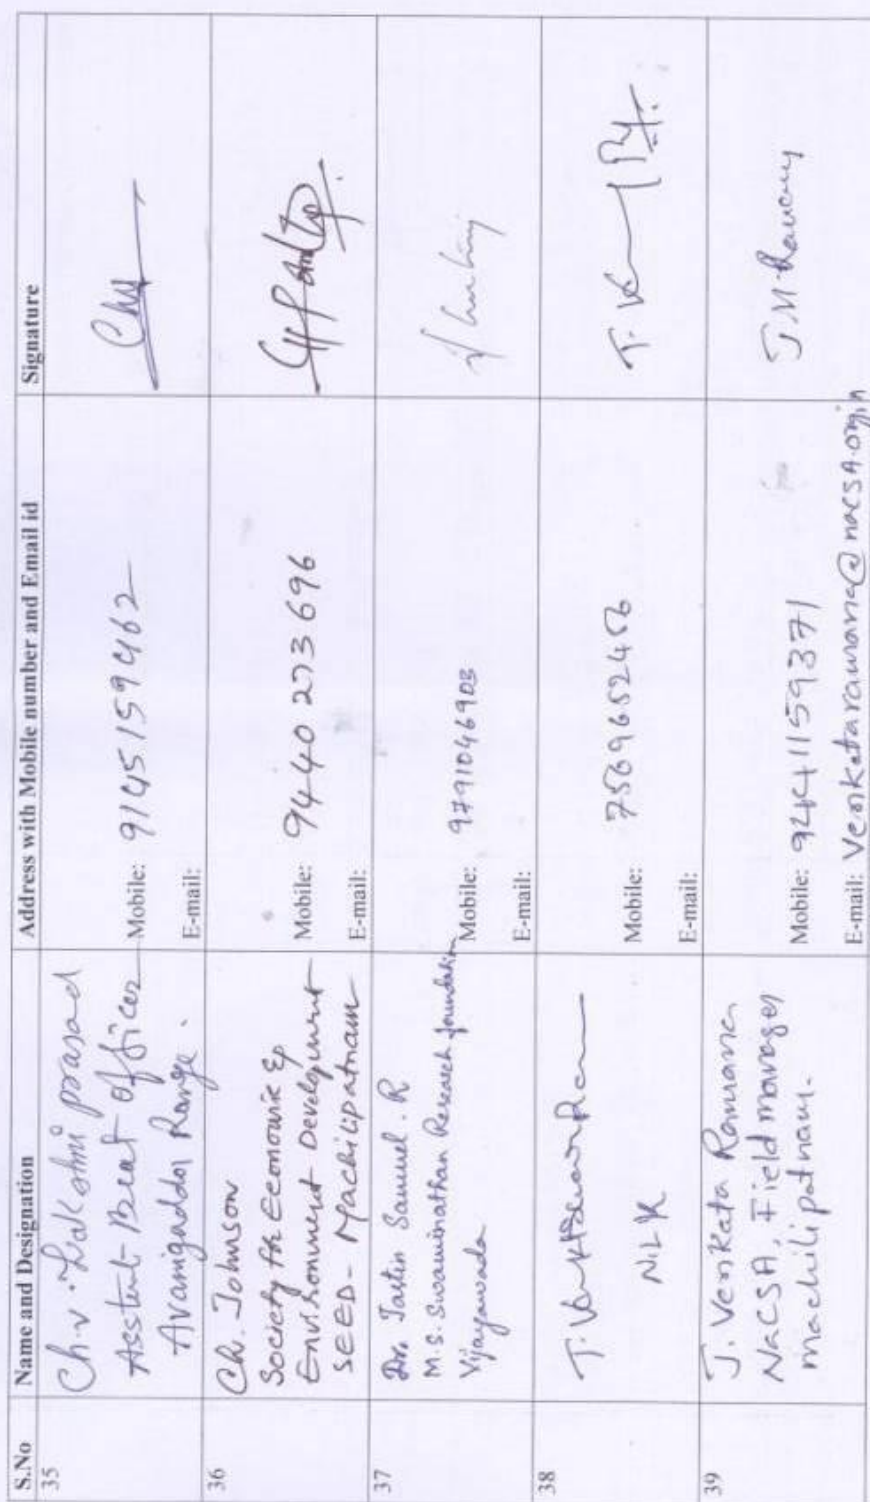 S.No Name and Designation Address with Mobile number and Email id Signature
35
Ch.v. Lakshmi prasad
Asstent Beat officer
Avanigaddor Range.
Mobile: 9145159462
E-mail:
36
Ch. Johnson
Society for Economic &
Environment Development
SEED - Machilipatnam
Mobile: 9440 273696
E-mail:
37
Dr. Jastin Samuel. R
M.S. Swaminathan Research foundation
Vijayawada
Mobile: 9791046903
E-mail:
38
T.
N.L.K
Mobile:
E-mail:
39
J. Venkata Ramana
NaCSA, Field manager
machilipatnam.
Mobile: 9441159371
E-mail: Venkataramana@nacsa.orgin